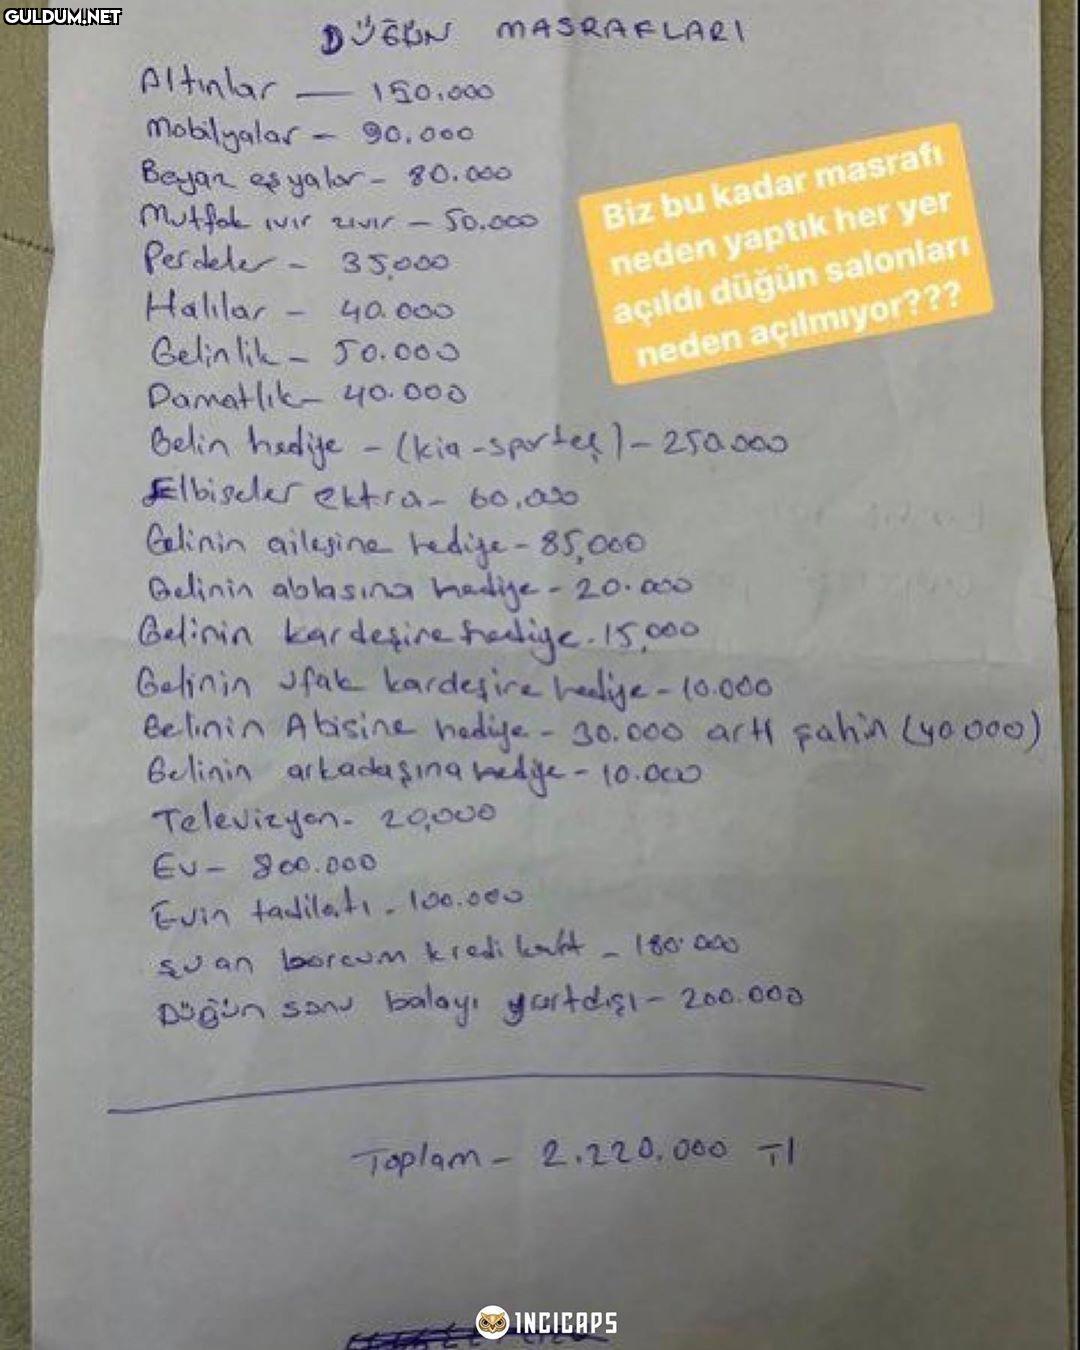 GULDUM.NET
DÜĞÜN MASRAFLARI
Altınlar — 150.000
Mobilyalar - 90.000
Beyaz eşyalar - 80.000
Mutfak ıvır zıvır - 50.000
Perdeler - 35,000
Halılar - 40.000
Gelinlik - 50.000
Damatlık - 40.000
Gelin hediye - (kia-sporteş) - 250.000
Elbiseler ektra - 60.000
Gelinin ailesine hediye - 85,000
Gelinin ablasına hediye - 20.000
Gelinin kardeşine hediye. 15,000
Gelinin ufak kardeşine hediye - 10.000
Gelinin Abisine hediye - 30.000 artı şahin (40.000)
Gelinin arkadaşına hediye - 10.000
Televizyon - 20,000
Ev - 800.000
Evin tadilatı - 100.000
şu an borcum kredi kartı - 180.000
Düğün sonu balayı yurtdışı - 200.000
Toplam - 2.220.000 Tl
Biz bu kadar masrafı
neden yaptık her yer
açıldı düğün salonları
neden açılmıyor???
INCICAPS